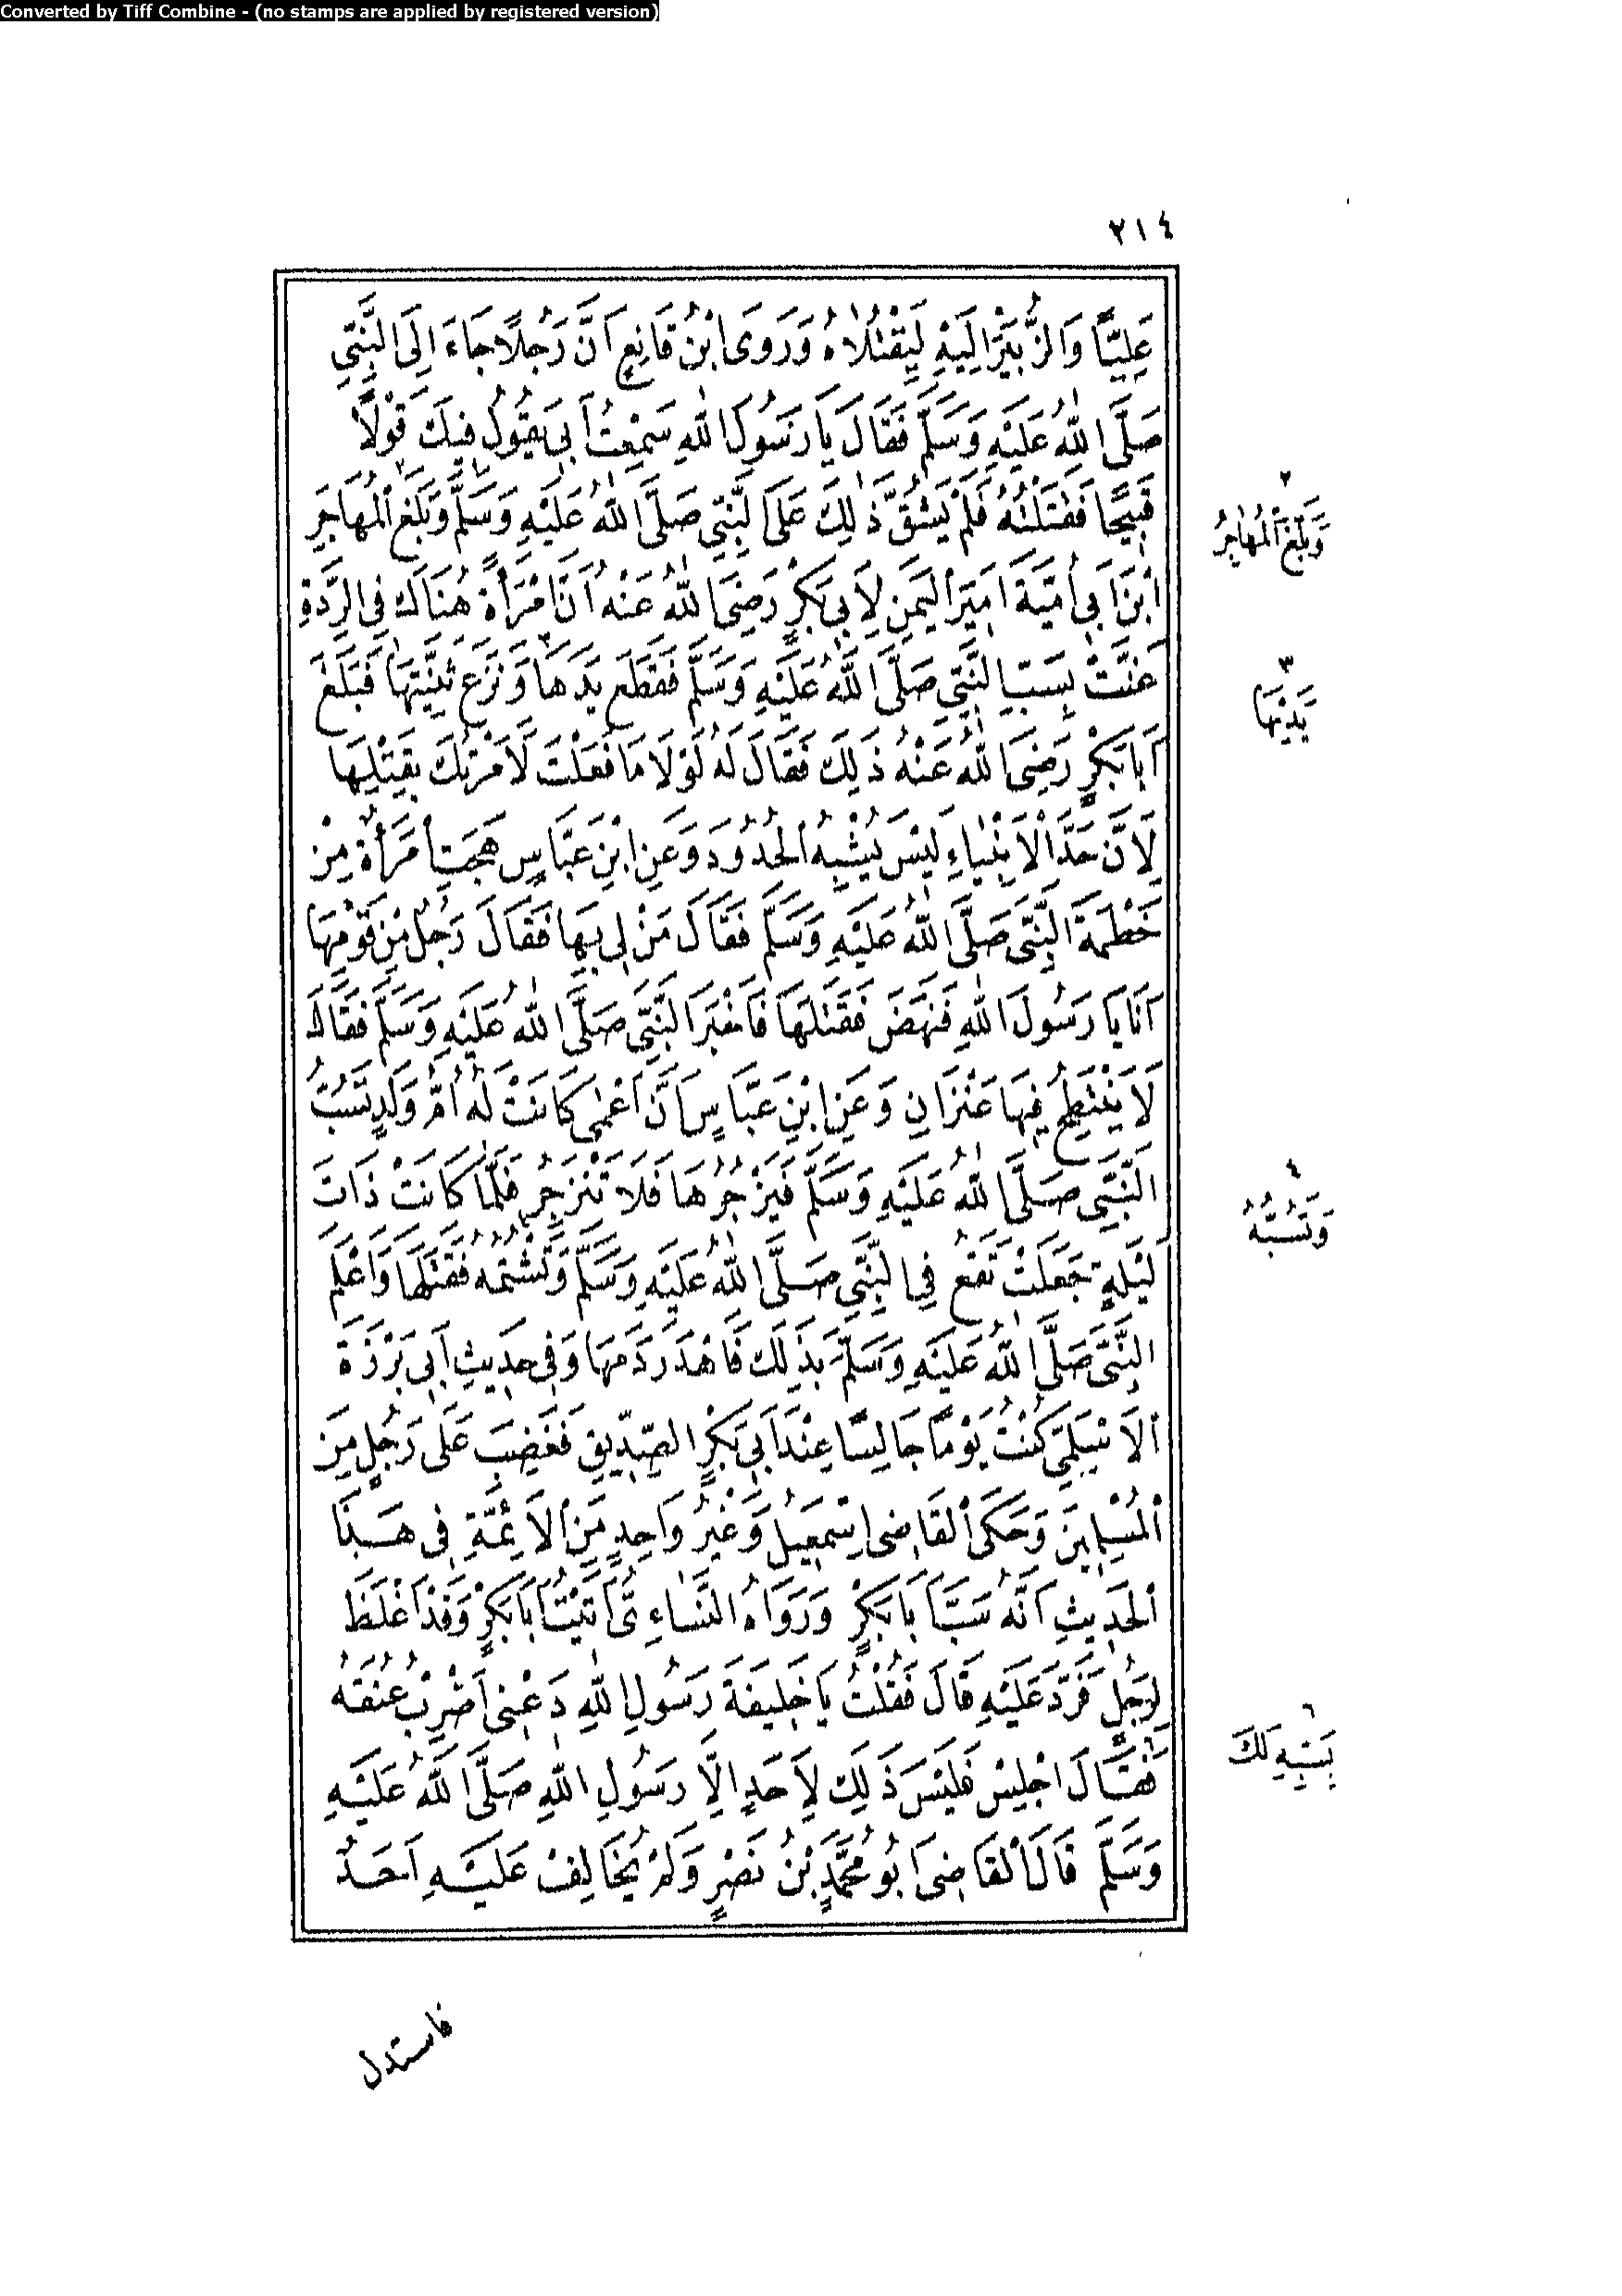 Converted by Tiff Combine - (no stamps are applied by registered version)
٢١٤
عَلِيًّا وَالزُّبَيْرَ اِلَيْهِ لِيَقْتُلَاهُ وَرَوَى ابْنُ قَانِعٍ اَنَّ رَجُلًا جَاءَ اِلَى النَّبِيِّ
صَلَّى اللهُ عَلَيْهِ وَسَلَّمَ فَقَالَ يَا رَسُولَ اللهِ سَمِعْتُ اَبِى يَقُولُ فِيكَ قَوْلًا
قَبِيحًا فَقَتَلْتُهُ فَلَمْ يَشُقَّ ذٰلِكَ عَلَى النَّبِيِّ صَلَّى اللهُ عَلَيْهِ وَسَلَّمَ وَبَلَغَ الْمُهَاجِرَ
ابْنَ اَبِى اُمَيَّةَ اَمِيرَ الْيَمَنِ لِاَبِى بَكْرٍ رَضِىَ اللهُ عَنْهُ اَنَّ امْرَأَةً هُنَاكَ فِى الرِّدَّةِ
غَنَّتْ بِسَبِّ النَّبِيِّ صَلَّى اللهُ عَلَيْهِ وَسَلَّمَ فَقَطَعَ يَدَهَا وَنَزَعَ ثَنِيَّتَهَا فَبَلَغَ
اَبَا بَكْرٍ رَضِىَ اللهُ عَنْهُ ذَلِكَ فَقَالَ لَهُ لَوْلَا مَا فَعَلْتَ لَاَمَرْتُكَ بِقَتْلِهَا
لِاَنَّ حَدَّ الْاَنْبِيَاءِ لَيْسَ يُشْبِهُ الْحُدُودَ وَعَنِ ابْنِ عَبَّاسٍ هَجَتِ امْرَأَةٌ مِنْ
خَطْمَةَ النَّبِىَّ صَلَّى اللهُ عَلَيْهِ وَسَلَّمَ فَقَالَ مَنْ لِى بِهَا فَقَالَ رَجُلٌ مِنْ قَوْمِهَا
اَنَا يَا رَسُولَ اللهِ فَنَهَضَ فَقَتَلَهَا فَاَخْبَرَ النَّبِىَّ صَلَّى اللهُ عَلَيْهِ وَسَلَّمَ فَقَالَ
لَا يَنْتَطِحُ فِيهَا عَنْزَانِ وَعَنِ ابْنِ عَبَّاسٍ اَنَّ اَعْمٰى كَانَتْ لَهُ اُمُّ وَلَدٍ تَسُبُّ
النَّبِىَّ صَلَّى اللهُ عَلَيْهِ وَسَلَّمَ فَيَزْجُرُهَا فَلَا تَنْزَجِرُ فَلَمَّا كَانَتْ ذَاتَ
لَيْلَةٍ جَعَلَتْ تَقَعُ فِى النَّبِيِّ صَلَّى اللهُ عَلَيْهِ وَسَلَّمَ وَتَشْتُمُهُ فَقَتَلَهَا وَاَعْلَمَ
النَّبِىَّ صَلَّى اللهُ عَلَيْهِ وَسَلَّمَ بِذَلِكَ فَاَهْدَرَ دَمَهَا وَفِى حَدِيثِ اَبِى بَرْزَةَ
الْاَسْلَمِىِّ كُنْتُ يَوْمًا جَالِسًا عِنْدَ اَبِى بَكْرٍ الصِّدِّيقِ فَغَضِبَ عَلَى رَجُلٍ مِنَ
الْمُسْلِمِينَ وَحَكَى الْقَاضِى اِسْمٰعِيلُ وَغَيْرُ وَاحِدٍ مِنَ الْاَئِمَّةِ فِى هٰذَا
الْحَدِيثِ اَنَّهُ سَبَّ اَبَا بَكْرٍ وَرَوَاهُ النَّسَاءِىُّ اَتَيْتُ اَبَا بَكْرٍ وَقَدْ اَغْلَظَ
لِرَجُلٍ فَرَدَّ عَلَيْهِ قَالَ فَقُلْتُ يَا خَلِيفَةَ رَسُولِ اللهِ دَعْنِى اَضْرِبْ عُنُقَهُ
فَقَالَ اجْلِسْ فَلَيْسَ ذَلِكَ لِاَحَدٍ اِلَّا رَسُولِ اللهِ صَلَّى اللهُ عَلَيْهِ
وَسَلَّمَ قَالَ الْقَاضِى اَبُو مُحَمَّدِ بْنُ نَصْرٍ وَلَمْ يُخَالِفْ عَلَيْهِ اَحَدٌ
٢
وَبَلَغَ الْمُهَاجِرُ
٣
يَدَيْهَا
٤
وَتَسُبُّهُ
٦
بِسَبِّهِ لَكَ
فاستدل